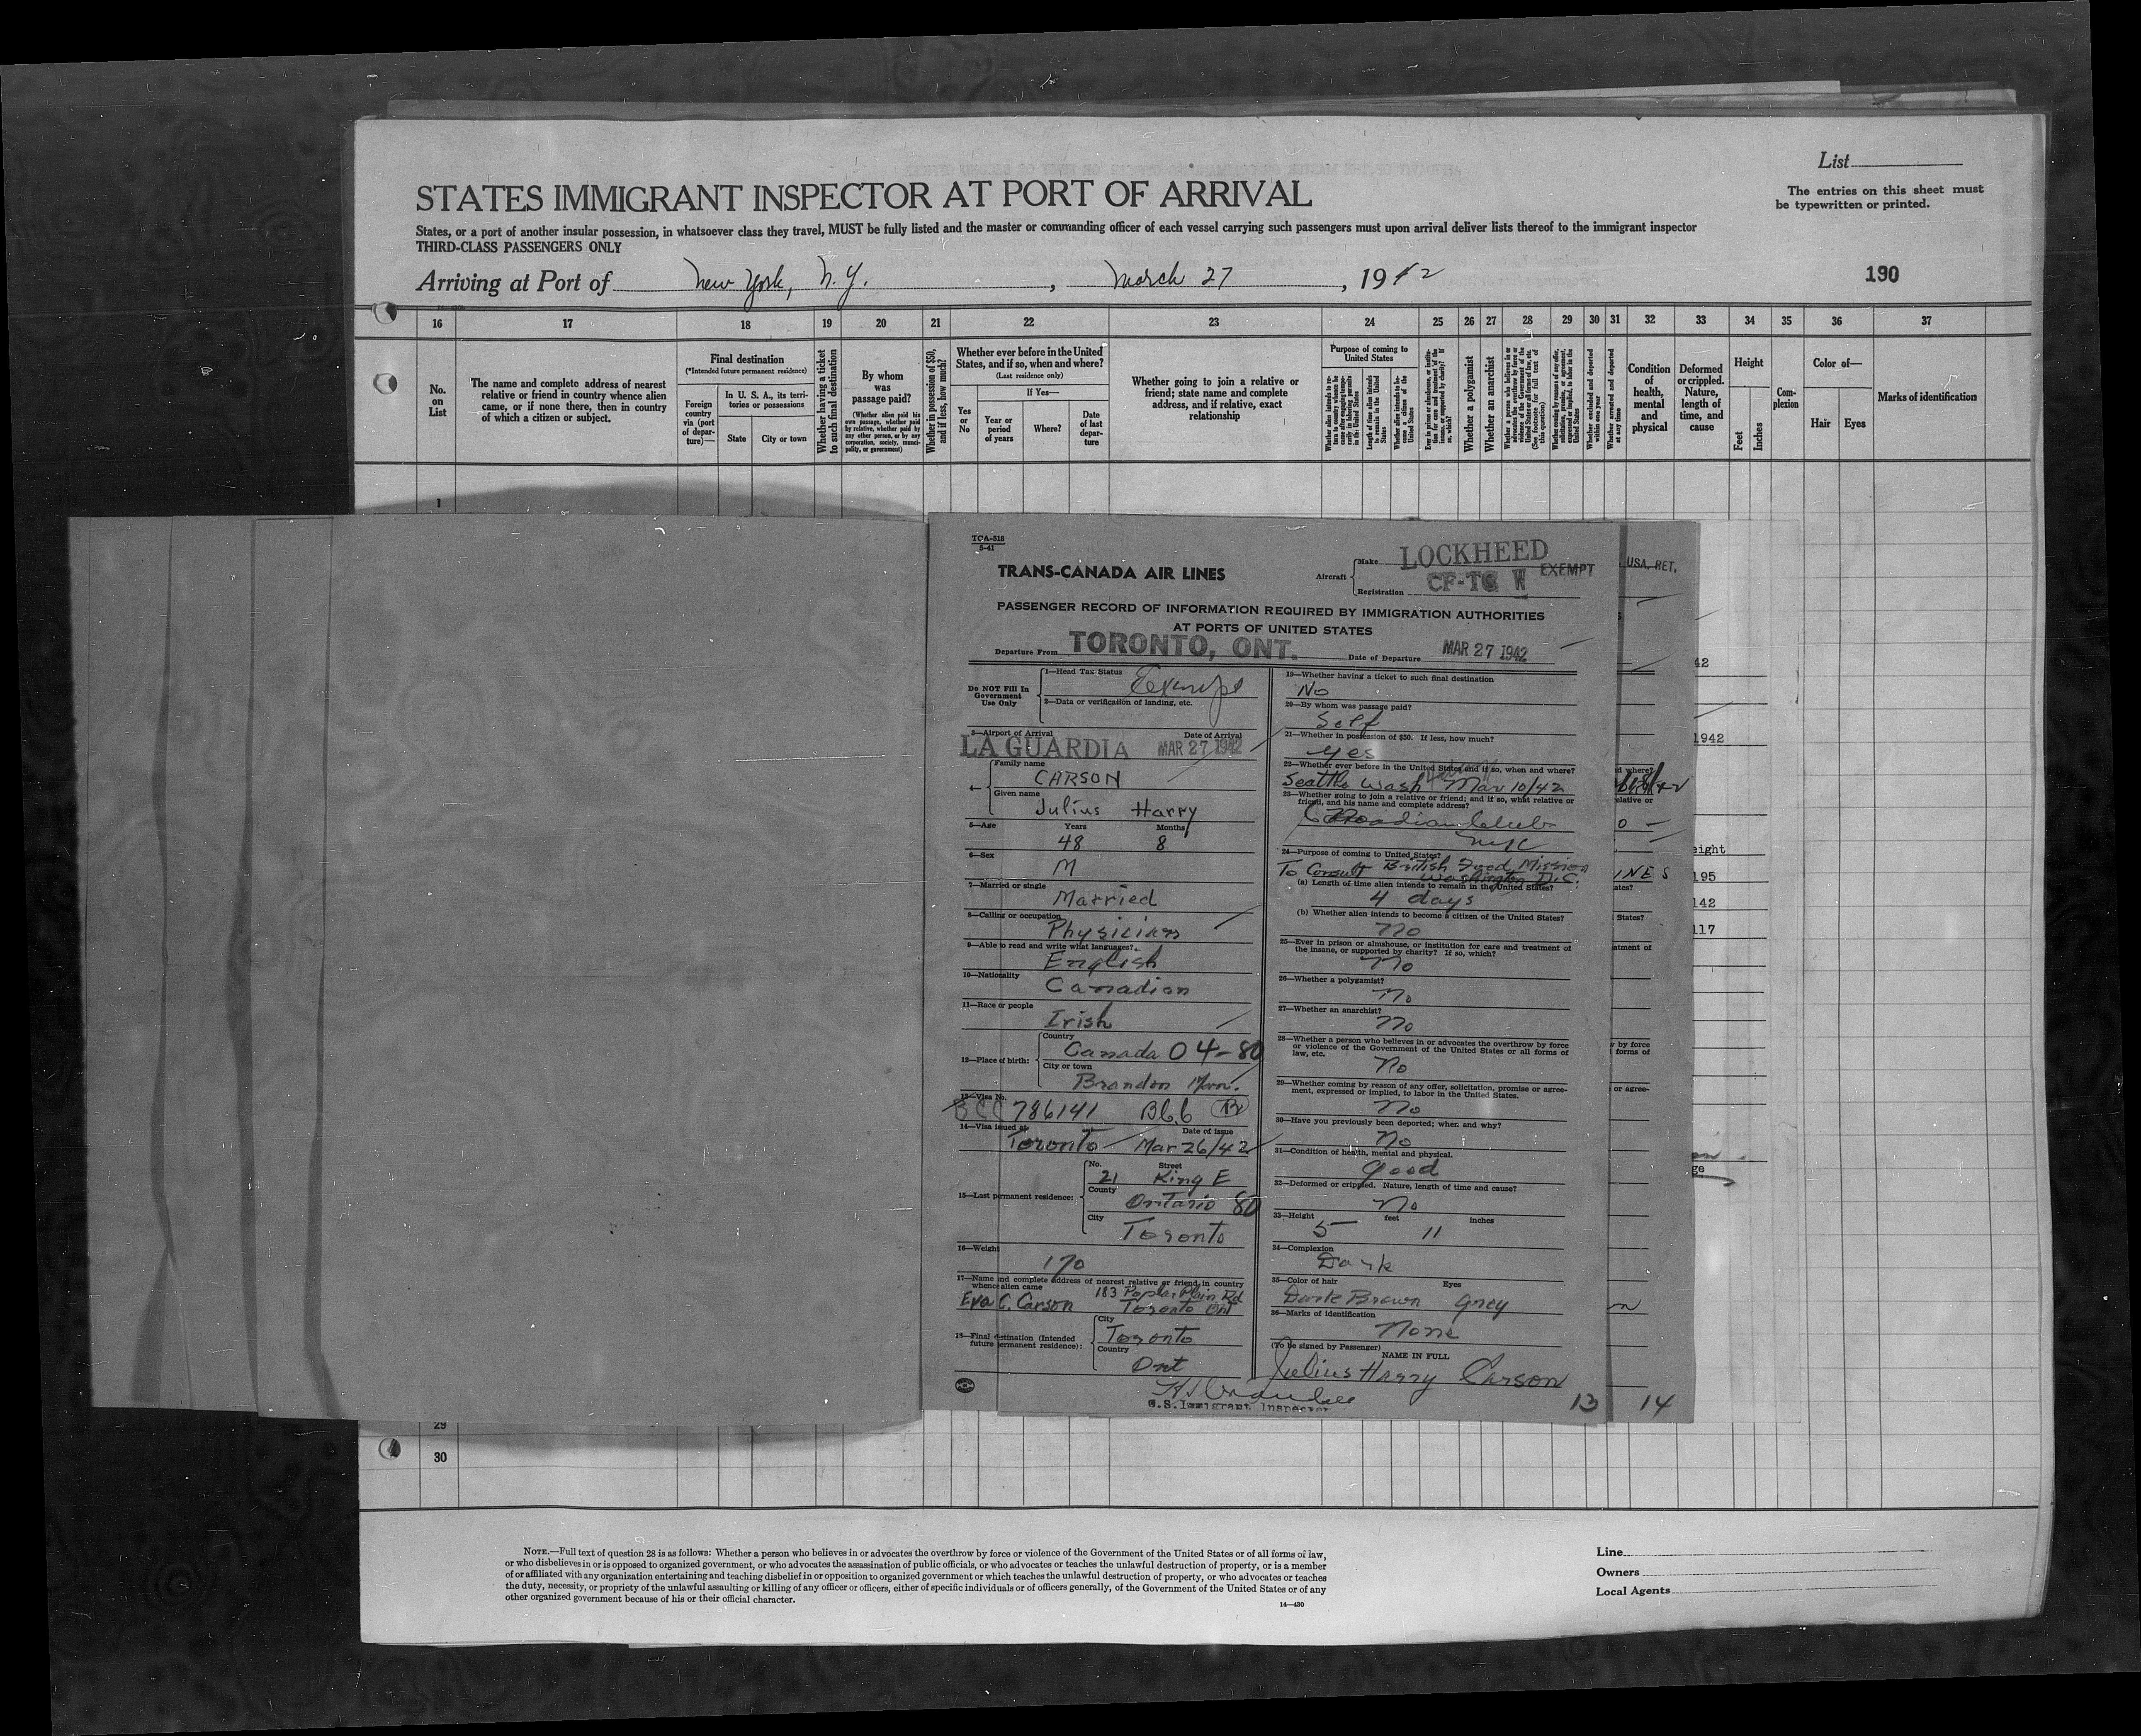 List
STATES IMMIGRANT INSPECTOR AT PORT OF ARRIVAL
The entries on this sheet must
be typewritten or printed.
States, or a port of another insular possession, in whatsoever class they travel, MUST be fully listed and the master or commanding officer of each vessel carrying such passengers must upon arrival deliver lists thereof to the immigrant inspector
THIRD-CLASS PASSENGERS ONLY
Arriving at Port of New York, N.Y., March 27, 1942
190
16 17 18 19 20 21 22 23 24 25 26 27 28 29 30 31 32 33 34 35 36 37
No.
on
List
The name and complete address of nearest
relative or friend in country whence alien
came, or if none there, then in country
of which a citizen or subject.
Final destination
(*Intended future permanent residence)
Foreign
country
via (port
of depar-
ture)—
In U. S. A., its terri-
tories or possessions
State
City or town
Whether having a ticket
to such final destination
By whom
was
passage paid?
(Whether alien paid his
own passage, whether paid
by relative, whether paid by
any other person, or by any
corporation, society, munici-
pality, or government)
Whether in possession of $50,
and if less, how much?
Whether ever before in the United
States, and if so, when and where?
(Last residence only)
If Yes—
Yes
or
No
Year or
period
of years
Where?
Date
of last
depar-
ture
Whether going to join a relative or
friend; state name and complete
address, and if relative, exact
relationship
Purpose of coming to
United States
Length of time alien intends
to remain in the United
States
Whether alien intends to be-
come a citizen of the
United States
Whether a polygamist
Whether an anarchist
Whether excluded and deported
within one year
Whether arrested and deported
at any time
Condition
of
health,
mental
and
physical
Deformed
or crippled.
Nature,
length of
time, and
cause
Height
Feet
Inches
Com-
plexion
Color of—
Hair
Eyes
Marks of identification
1
TCA-518
5-41
TRANS-CANADA AIR LINES
Aircraft
Make LOCKHEED
EXEMPT
Registration CF-TC W
PASSENGER RECORD OF INFORMATION REQUIRED BY IMMIGRATION AUTHORITIES
AT PORTS OF UNITED STATES
Departure From TORONTO, ONT. Date of Departure MAR 27 1942
Do NOT Fill In
Government
Use Only
1—Head Tax Status Exempt
2—Data or verification of landing, etc.
3—Airport of Arrival Date of Arrival
LA GUARDIA MAR 27 1942
4—
Family name
CARSON
Given name
Julius Harry
5—Age Years Months
48 8
6—Sex
M
7—Married or single
Married
8—Calling or occupation
Physician
9—Able to read and write what languages?
English
10—Nationality
Canadian
11—Race or people
Irish
12—Place of birth:
Country
Canada 04-80
City or town
Brandon Man.
13—Visa No.
BCC 786141 B66 B
14—Visa issued at Date of issue
Toronto Mar 26/42
15—Last permanent residence:
No. Street
21 King E
County
Ontario 80
City
Toronto
16—Weight
170
17—Name and complete address of nearest relative or friend in country
whence alien came
183 Poplar Plain Rd
Eva C. Carson Toronto Ont
18—Final destination (Intended
future permanent residence):
City
Toronto
Country
Ont
U.S. Immigrant Inspector
19—Whether having a ticket to such final destination
No
20—By whom was passage paid?
Self
21—Whether in possession of $50. If less, how much?
yes
22—Whether ever before in the United States and if so, when and where?
Seattle Wash Mar 10/42
23—Whether going to join a relative or friend; and if so, what relative or
friend, and his name and complete address?
Canadian Club
NYC
24—Purpose of coming to United States?
To Consult British Food Mission
Washington D.C.
(a) Length of time alien intends to remain in the United States?
4 days
(b) Whether alien intends to become a citizen of the United States?
no
25—Ever in prison or almshouse, or institution for care and treatment of
the insane, or supported by charity? If so, which?
No
26—Whether a polygamist?
No
27—Whether an anarchist?
No
28—Whether a person who believes in or advocates the overthrow by force
or violence of the Government of the United States or all forms of
law, etc.
No
29—Whether coming by reason of any offer, solicitation, promise or agree-
ment, expressed or implied, to labor in the United States.
No
30—Have you previously been deported; when and why?
No
31—Condition of health, mental and physical.
good
32—Deformed or crippled. Nature, length of time and cause?
No
33—Height feet inches
5 11
34—Complexion
Dark
35—Color of hair Eyes
Dark Brown Grey
36—Marks of identification
None
(To be signed by Passenger)
NAME IN FULL
Julius Harry Carson
13
14
USA. RET,
42
1942
d where?
relative or
0 —
eight
INES
195
ates?
142
States?
117
atment of
w by force
forms of
or agree-
ge
29
30
NOTE.—Full text of question 28 is as follows: Whether a person who believes in or advocates the overthrow by force or violence of the Government of the United States or of all forms of law,
or who disbelieves in or is opposed to organized government, or who advocates the assassination of public officials, or who advocates or teaches the unlawful destruction of property, or is a member
of or affiliated with any organization entertaining and teaching disbelief in or opposition to organized government or which teaches the unlawful destruction of property, or who advocates or teaches
the duty, necessity, or propriety of the unlawful assaulting or killing of any officer or officers, either of specific individuals or of officers generally, of the Government of the United States or of any
other organized government because of his or their official character.
14—430
Line
Owners
Local Agents